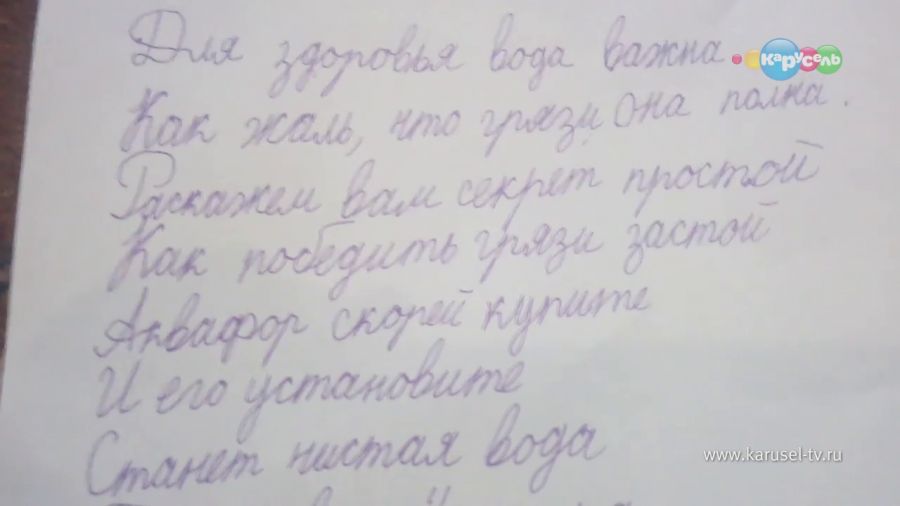 Для здоровья вода важна.
Карусель
Как жаль, что грязи она полна.
Раскажем вам секрет простой
Как победить грязи застой
Аквафор скорей купите
И его установите
Станет чистая вода
www.karusel-tv.ru